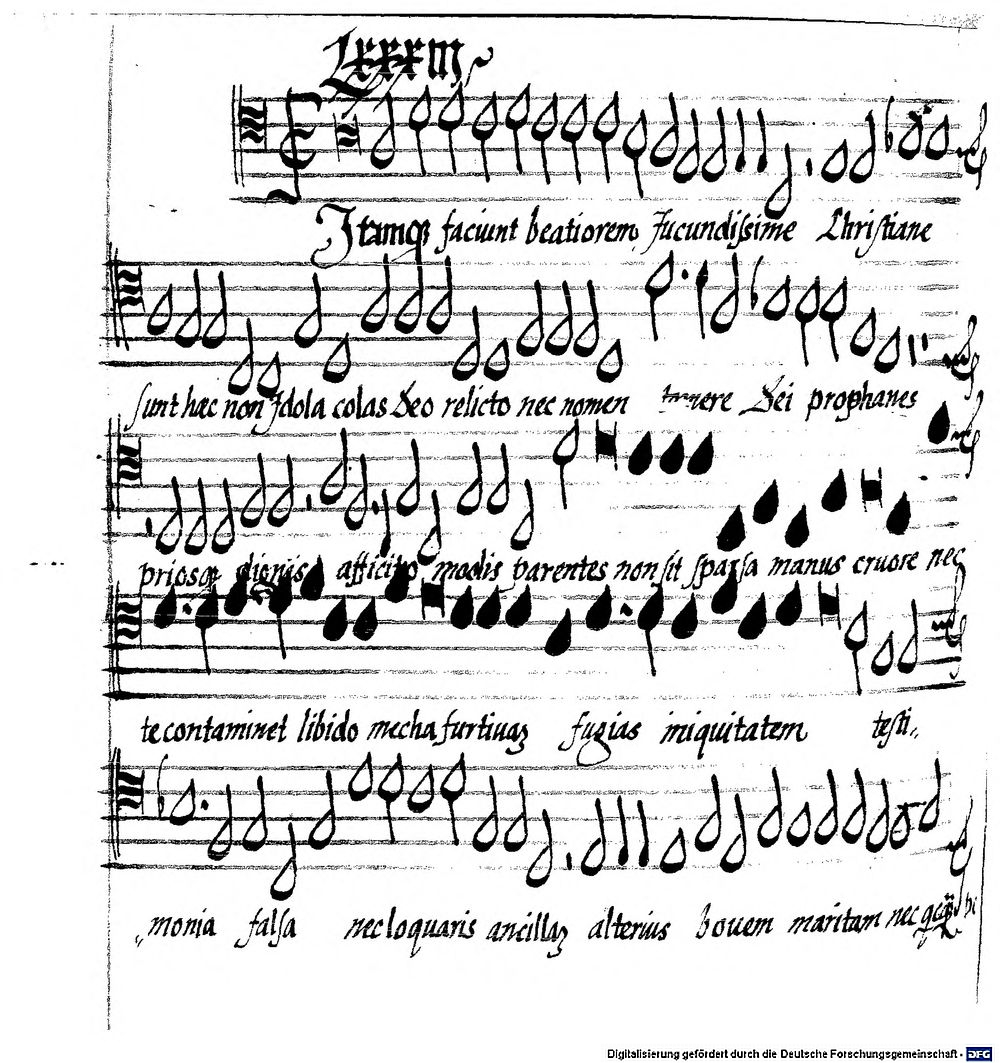 Lxxxiij
Itamq faciunt beatiorem Jucundissime Christiane
sunt hæc non Idola colas Deo relicto nec nomen temere Dei prophanes
priosq dignis afficito modis parentes non sit sparsa manus cruore nec
te contaminet libido mecha furtivaz fugias iniquitatem testi„
„monia falsa nec loquaris ancillaz alterius bouem maritam nec
Digitalisierung gefördert durch die Deutsche Forschungsgemeinschaft - DFG